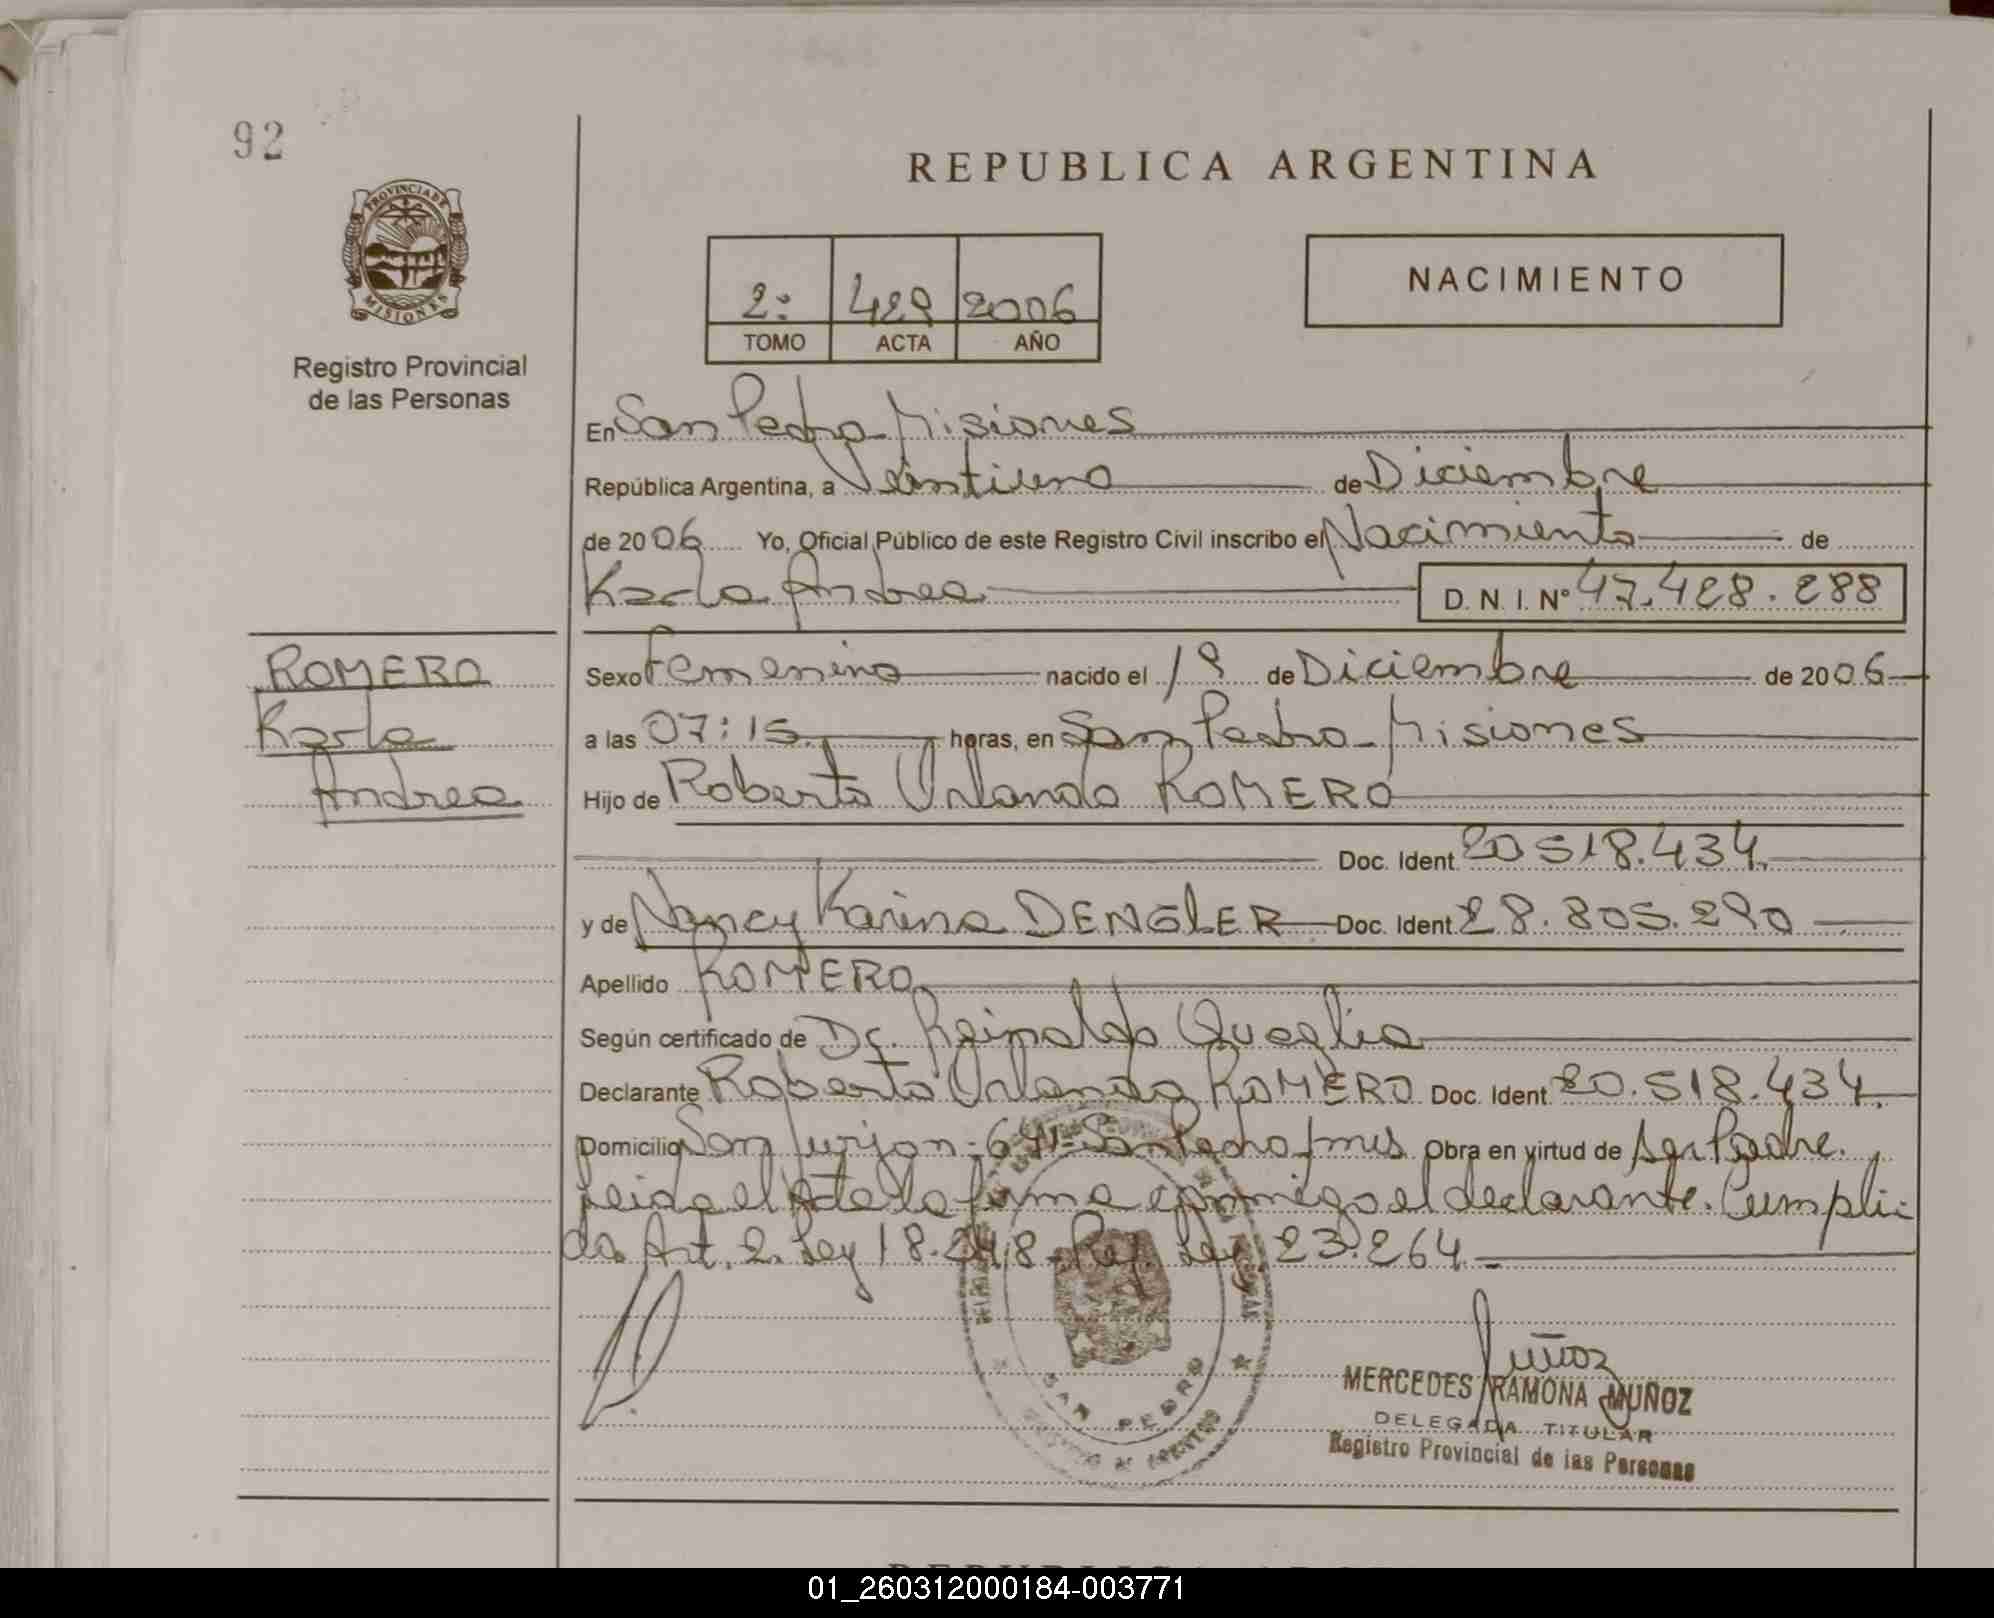 92
REPUBLICA ARGENTINA
PROVINCIA DE
MISIONES
Registro Provincial
de las Personas
2º 429 2006
TOMO ACTA AÑO
NACIMIENTO
En San Pedro Misiones
República Argentina, a Veintiuno de Diciembre
de 2006 Yo, Oficial Público de este Registro Civil inscribo el Nacimiento de
Karla Andrea D. N. I. Nº 47.428.288
ROMERO
Karla
Andrea
Sexo Femenino nacido el 1º de Diciembre de 2006
a las 07:15 horas, en San Pedro Misiones
Hijo de Roberto Orlando ROMERO
Doc. Ident 20518.434
y de Nancy Karina DENGLER Doc. Ident 28.805.290
Apellido ROMERO
Según certificado de Dr. Reinaldo Quaglia
Declarante Roberto Orlando ROMERO Doc. Ident 20.518.434
Domicilio San Pedro Mnes Obra en virtud de ser Padre.
Leida el Acta la firma conmigo el declarante. Cumpli-
do Art. 2. Ley 18.248 Ref. Ley 23.264.-
SAN PEDRO
Muñoz
MERCEDES RAMONA MUÑOZ
DELEGADA TITULAR
Registro Provincial de las Personas
01_260312000184-003771